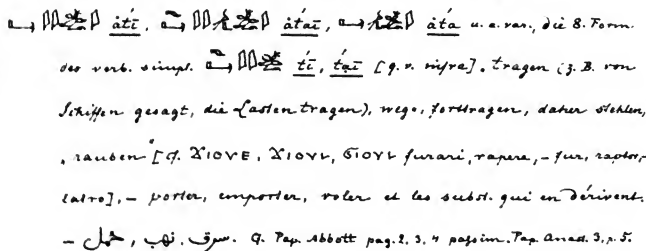 átī, átaī, áta u. a. var., die 8. Form
des verb. simpl. tī, taī [q. v. infra], tragen (z. B. von
Schiffen gesagt, die Lasten tragen), weg-, forttragen, daher stehlen,
rauben [cf. ϪⲒⲞⲨⲈ, ϪⲒⲞⲨⲒ, ϬⲒⲞⲨⲒ furari, rapere, – fur, raptor,
latro], – porter, emporter, voler et les subst. qui en dérivent.
– حمل , نهب , سرق. Cf. Pap. Abbott pag. 2, 3, 4 passim. Pap. Anast. 3, p. 5.